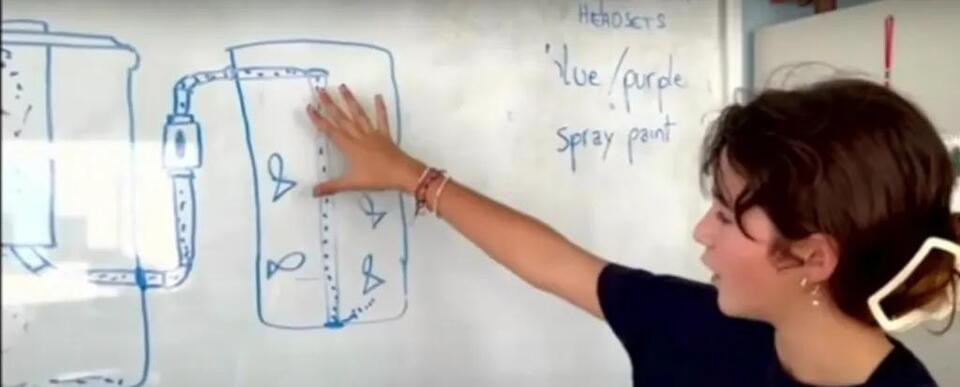 HEADSETS
blue/purple
spray paint